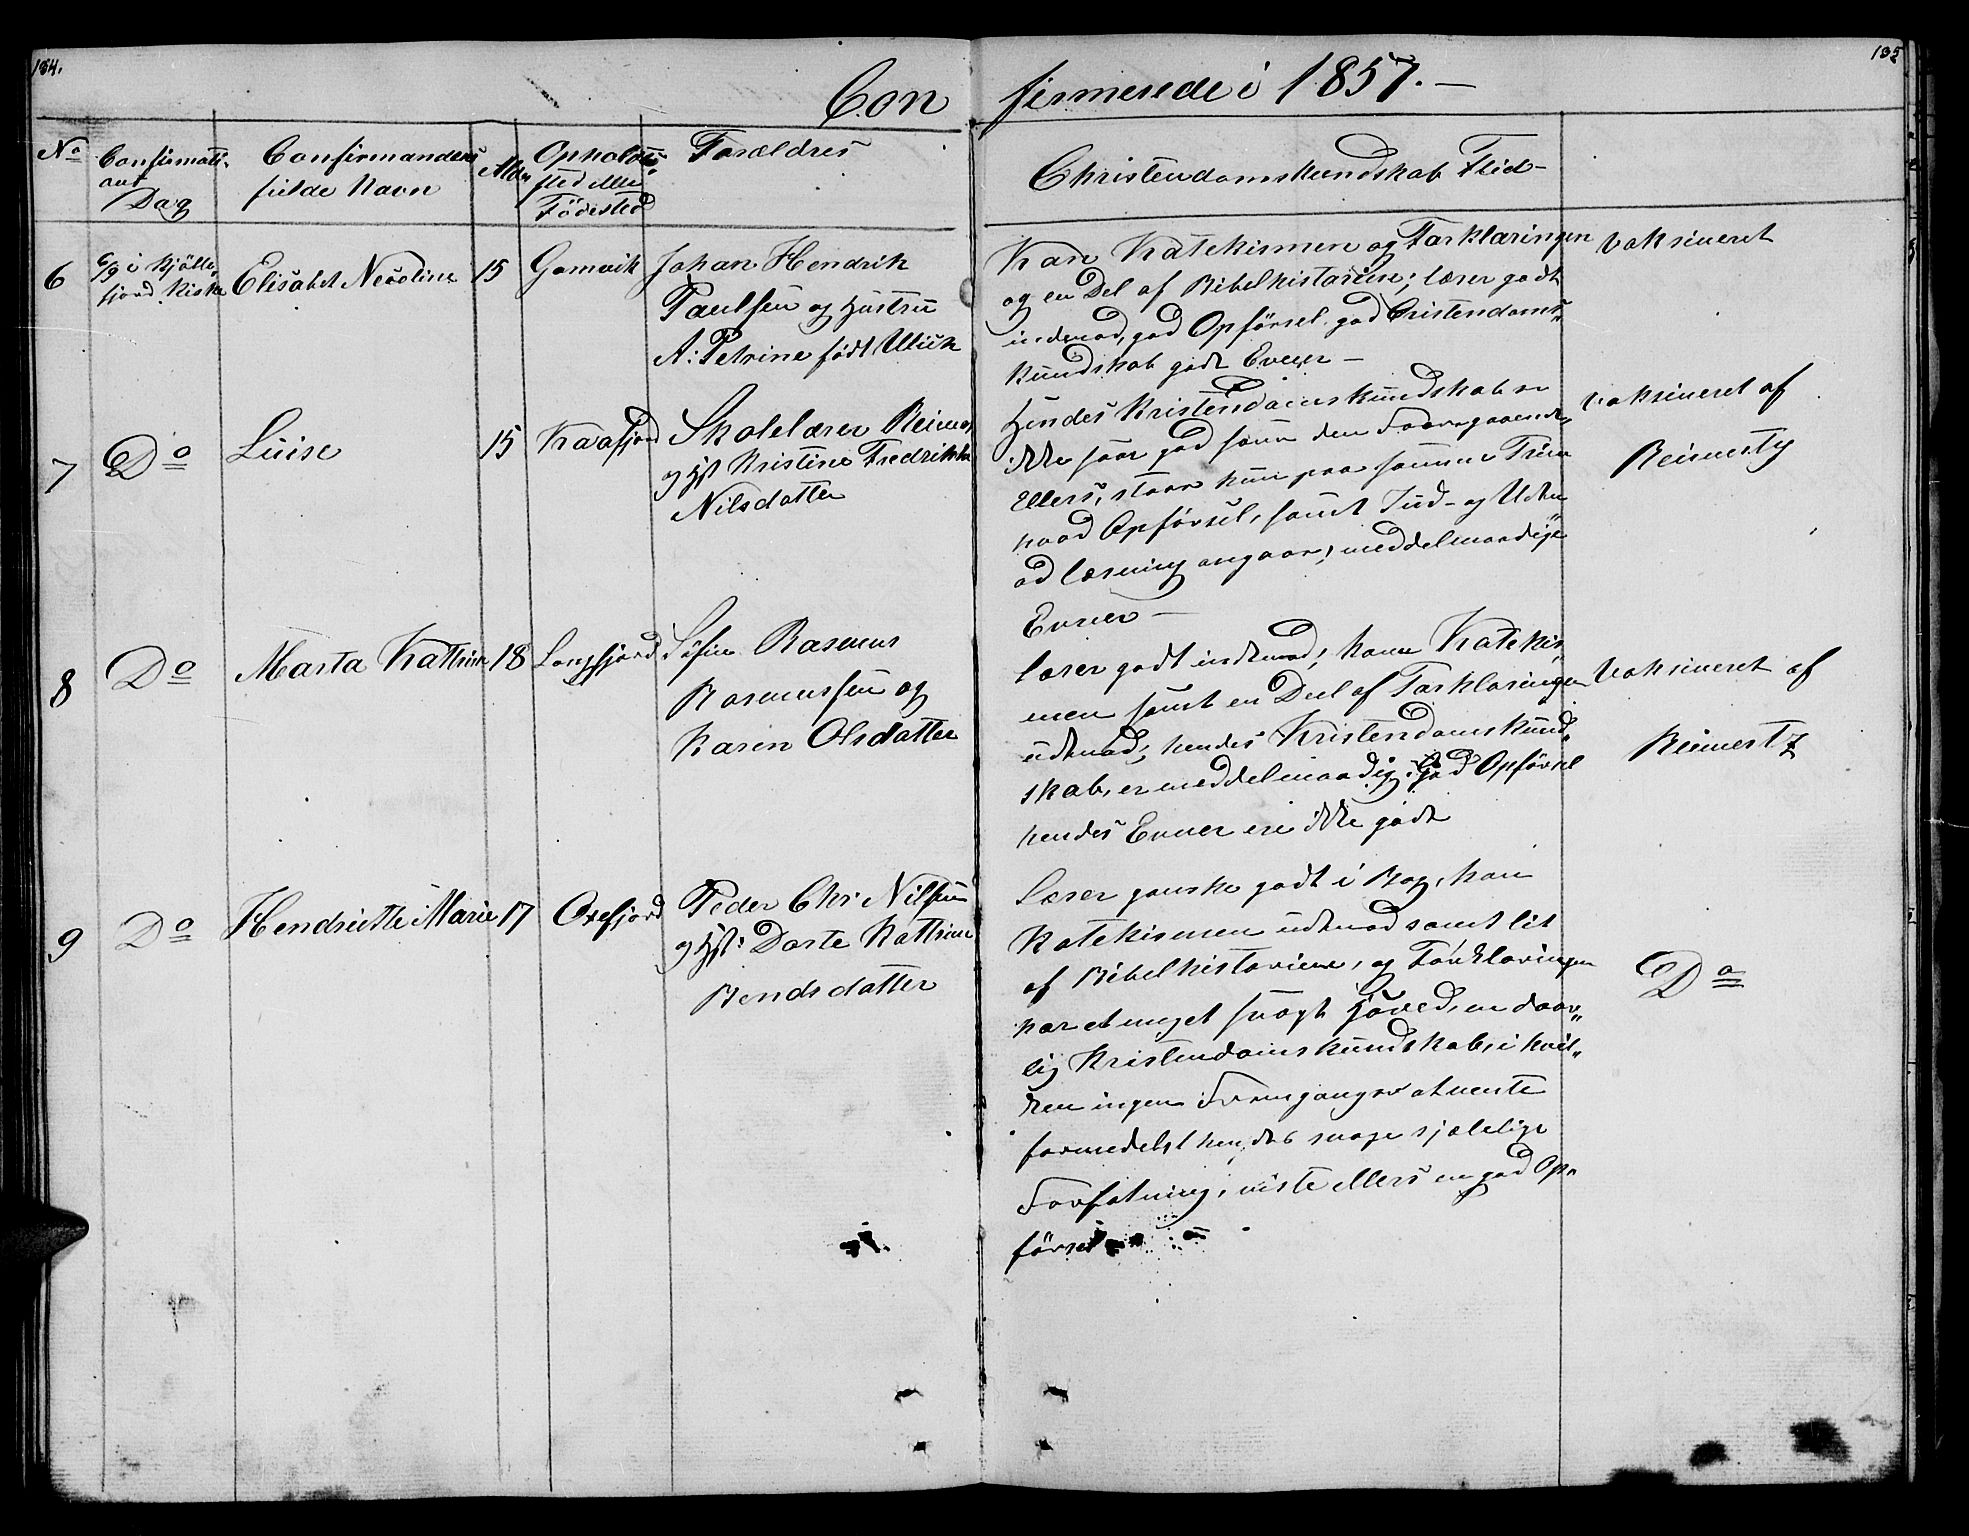 134.
135
Con firmerede i 1857. —
No
Confirmati-
ons
Dag
Confirmandens
fulde Navn
Alder
Opholds-
sted eller
Födested
Forældres
Christendomskundskab Flid
6
6/9 i Kjölle-
fjord Kirke
Elisabet Nicoline
15
Gamvik
Johan Hendrik
Paulsen og Hustru
A: Petrine födt Ulich
Kan Katekismen og Forklaringen
og en Del af Bibelhistorien; læser godt
indenad, god Opførsel. god Cristendoms-
kundskab godt Evner —
Vaksineret
7
Do
Luise
15
Kaafjord
Skolelærer Reimer
og Hst Kristine Fredrikke
Nilsdatter
Hendes Kristendomskundskab er
ikke saa god som den Foregaaende,
Ellers, staar hun paa samme Trin
hvad Opførsel, samt Ind- og Uden
ad læsning angaar, meddelmaadige
Evner —
Vaksineret af
8
Do
Marta Kattrine
18
Langfjord
Rasmus
Rasmussen og
Karen Olsdatter
læser godt indenad; kan Katekis-
men samt en Deel af Forklaringen
udenad; hendes Kristendomskund-
skab, er meddelmaadig. God Opførsel
hendes Evner ere ikke godt
Vaksineret af
9
Do
Hendriette Marie
17
Oxefjord
Peder Chr Nilsen
og Hst: Dorte Kattrine
Bendsdatter
Læser ganske godt i Bog, kan
Katekismen udenad samt lit
af Bibelhistorien, og Forklaringen
har et meget svagt Hoved, en daar-
lig Kristendomskundskab, i hvil-
ken ingen Fremgang er at vente
formedelst hendes svage sjælelige
Forfatning, viste ellers en god Op-
førsel
Do